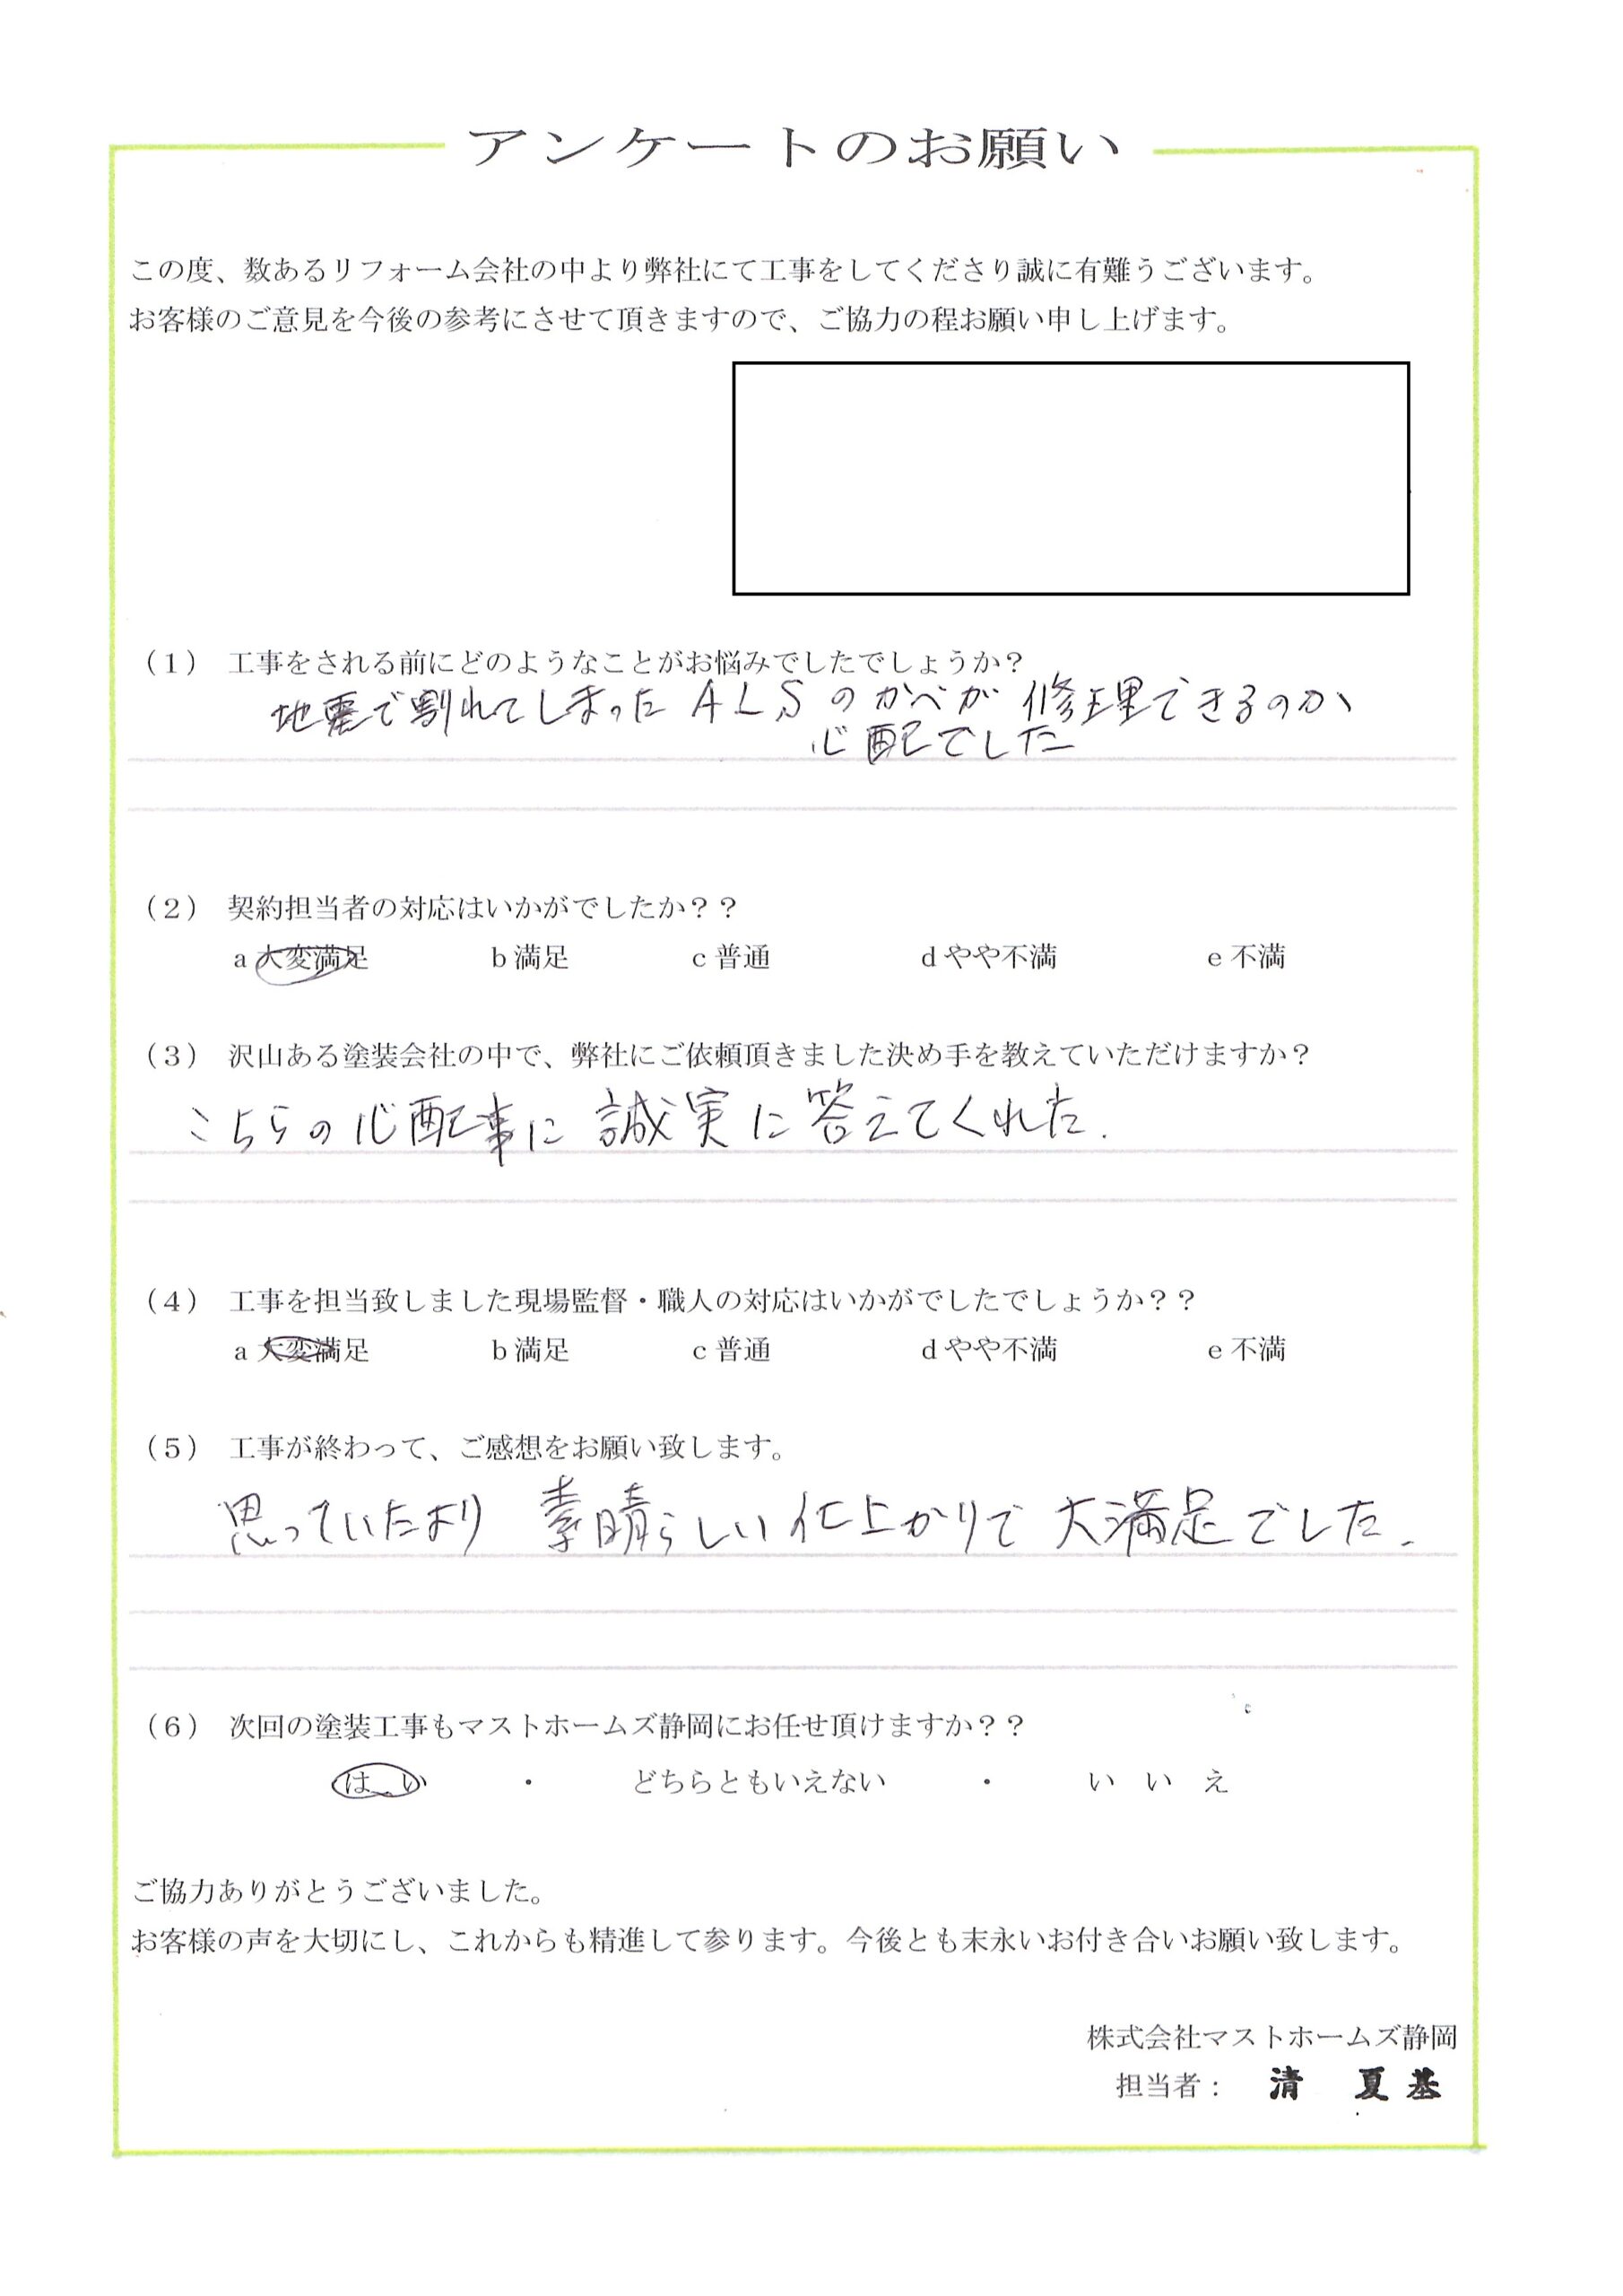 アンケートのお願い
この度、数あるリフォーム会社の中より弊社にて工事をしてくださり誠に有難うございます。
お客様のご意見を今後の参考にさせて頂きますので、ご協力の程お願い申し上げます。
（1） 工事をされる前にどのようなことがお悩みでしたでしょうか？
地震で割れてしまった ALS のかべが 修理できるのか
心配でした
（2） 契約担当者の対応はいかがでしたか？？
a 大変満足 b 満足 c 普通 d やや不満 e 不満
（3） 沢山ある塗装会社の中で、弊社にご依頼頂きました決め手を教えていただけますか？
こちらの心配事に 誠実に答えてくれた.
（4） 工事を担当致しました現場監督・職人の対応はいかがでしたでしょうか？？
a 大変満足 b 満足 c 普通 d やや不満 e 不満
（5） 工事が終わって、ご感想をお願い致します。
思っていたより 素晴らしい仕上がりで 大満足でした.
（6） 次回の塗装工事もマストホームズ静岡にお任せ頂けますか？？
はい ・ どちらともいえない ・ いいえ
ご協力ありがとうございました。
お客様の声を大切にし、これからも精進して参ります。今後とも末永いお付き合いお願い致します。
株式会社マストホームズ静岡
担当者： 清 夏基